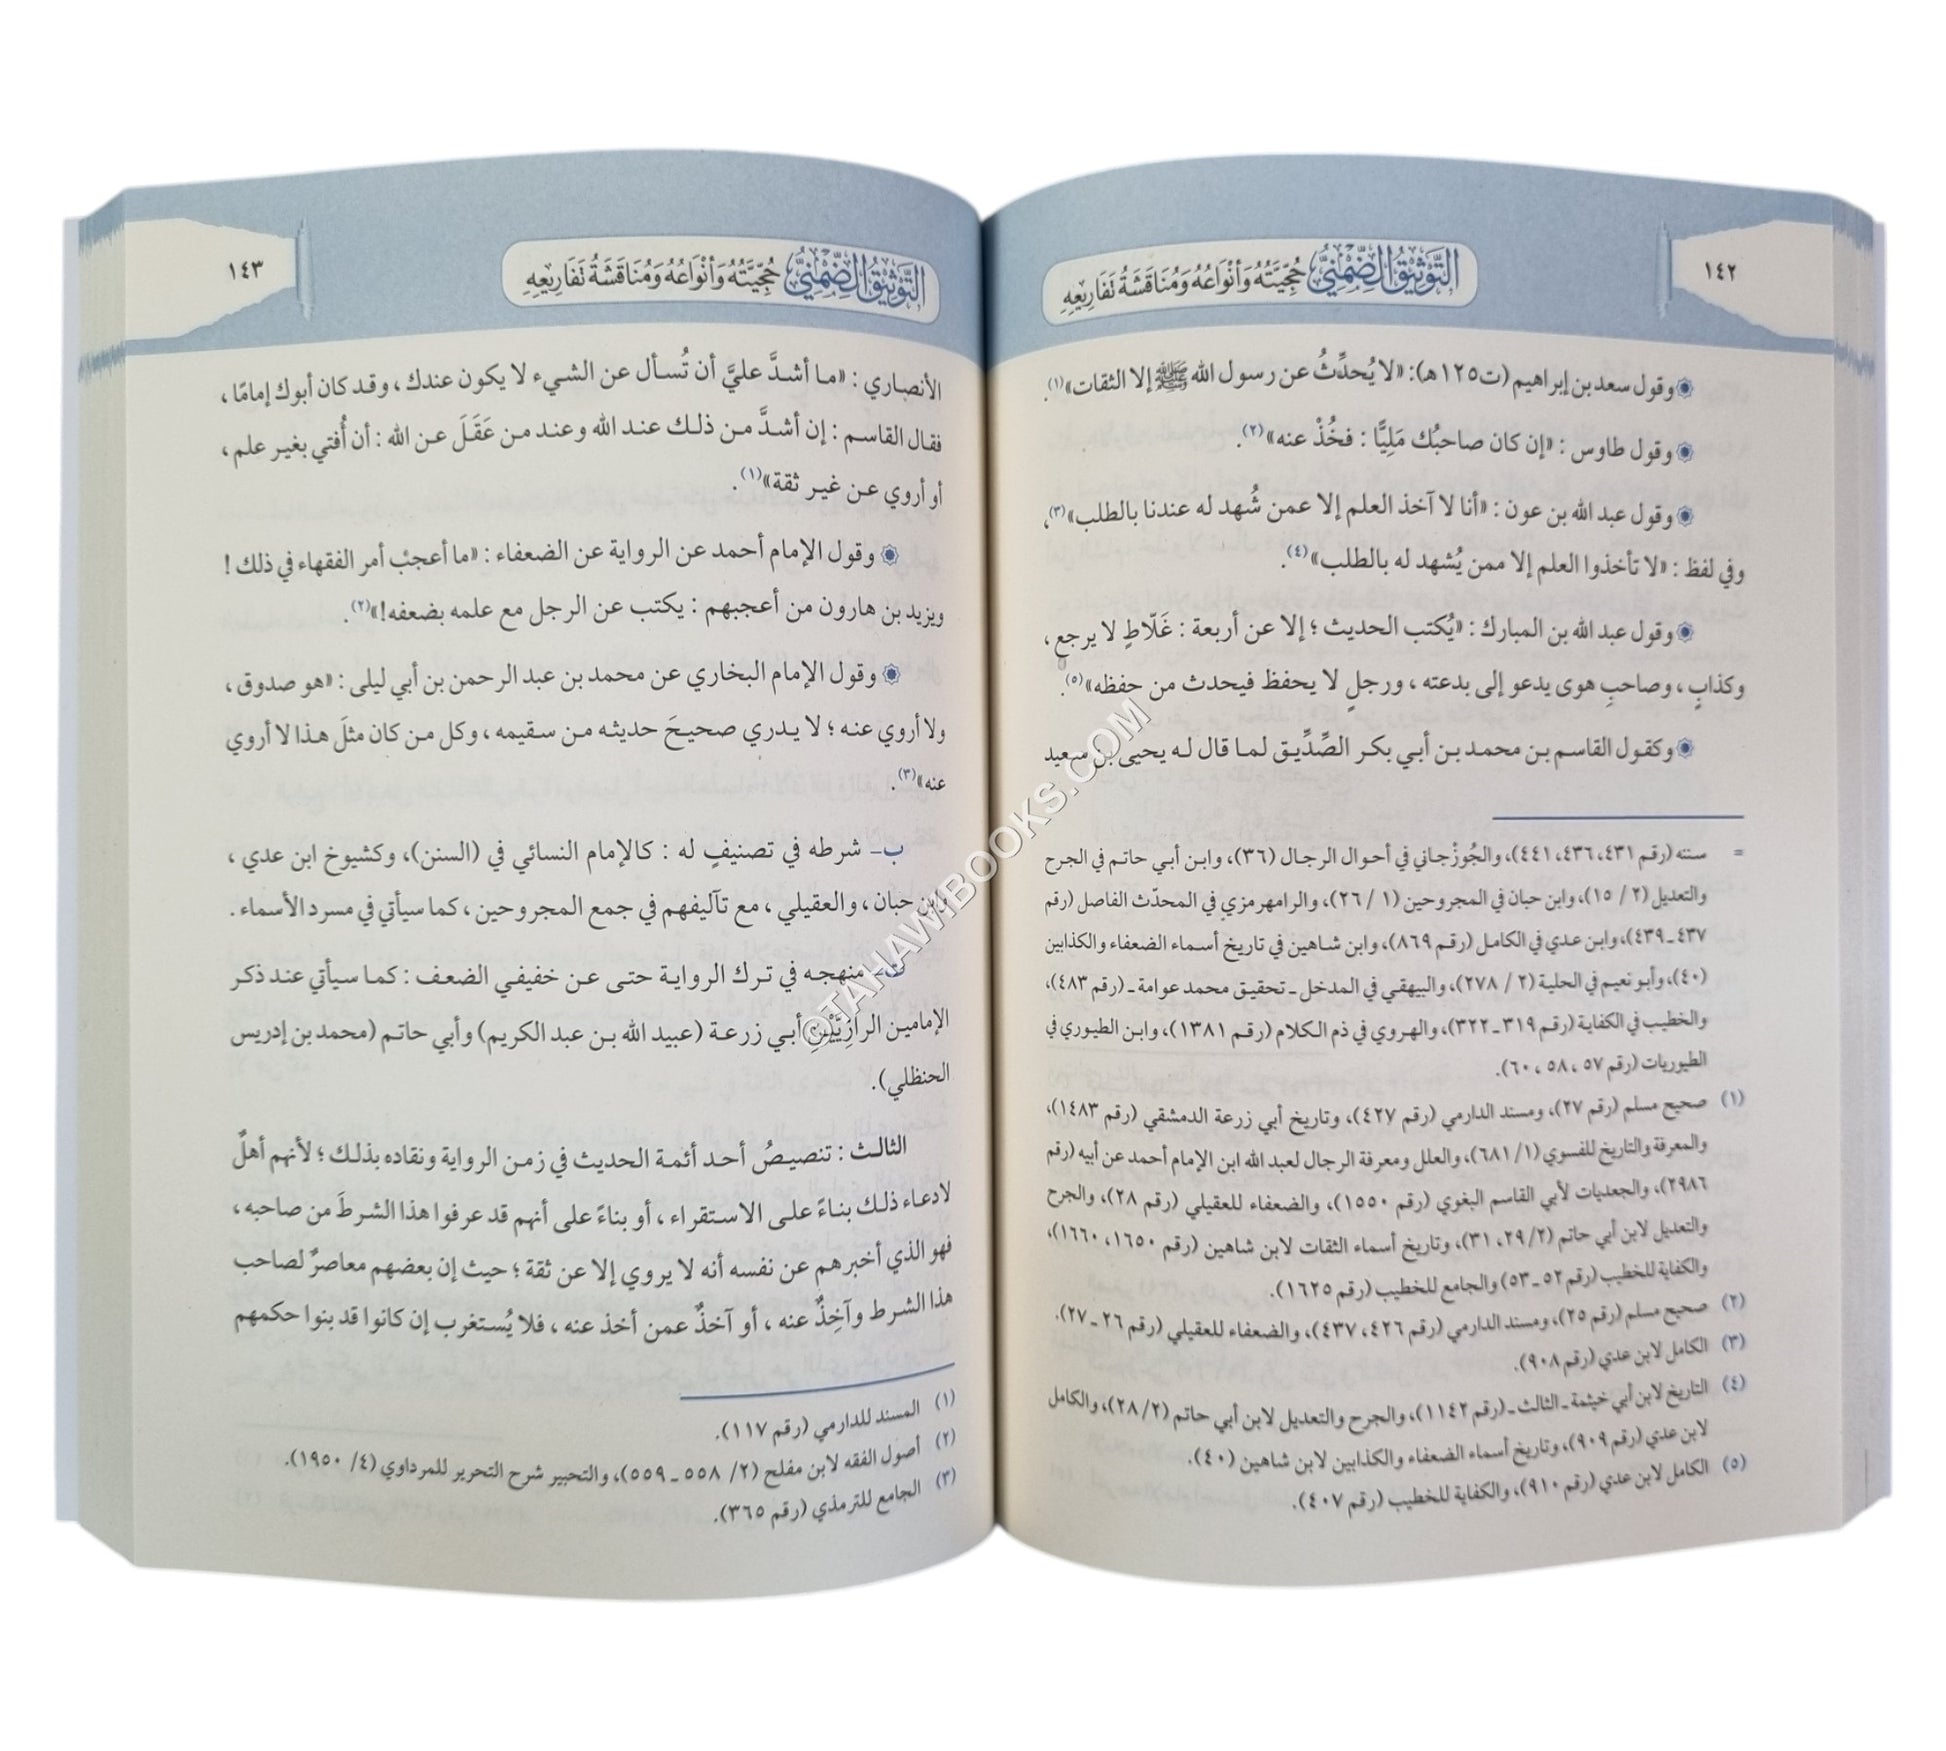 ١٤٢
التَّوْثِيقُ الضِّمْنِيُّ حُجِّيَّتُهُ وَأَنْوَاعُهُ وَمُنَاقَشَةُ تَفَارِيعِهِ
وقول سعد بن إبراهيم (ت١٢٥هـ): «لا يُحدِّثُ عن رسول الله ﷺ إلا الثقات»(١).
وقول طاوس : «إن كان صاحبُك مَلِيًّا : فخُذْ عنه»(٢).
وقول عبد الله بن عون : «أنا لا آخذ العلم إلا عمن شُهد له عندنا بالطلب»(٣)،
وفي لفظ : «لا تأخذوا العلم إلا ممن يُشهد له بالطلب»(٤).
وقول عبد الله بن المبارك : «يُكتب الحديث ؛ إلا عن أربعة : غَلّاطٍ لا يرجع ،
وكذابٍ ، وصاحبِ هوى يدعو إلى بدعته ، ورجلٍ لا يحفظ فيحدث من حفظه»(٥).
وكقول القاسم بن محمد بن أبي بكر الصِّدِّيق لما قال له يحيى بن سعيد
= سننه (رقم ٤٣١، ٤٣٦، ٤٤١)، والجُوزْجاني في أحوال الرجال (٣٦)، وابن أبي حاتم في الجرح
والتعديل (٢ / ١٥)، وابن حبان في المجروحين (١ / ٢٦)، والرامهرمزي في المحدّث الفاصل (رقم
٤٣٧ ـ ٤٣٩)، وابن عدي في الكامل (رقم ٨٦٩)، وابن شاهين في تاريخ أسماء الضعفاء والكذابين
(٤٠)، وأبو نعيم في الحلية (٢ / ٢٧٨)، والبيهقي في المدخل ـ تحقيق محمد عوامة ـ (رقم ٤٨٣)،
والخطيب في الكفاية (رقم ٣١٩ ـ ٣٢٢)، والهروي في ذم الكلام (رقم ١٣٨١)، وابن الطيوري في
الطيوريات (رقم ٥٧ ، ٥٨ ، ٦٠).
(١) صحيح مسلم (رقم ٢٧)، ومسند الدارمي (رقم ٤٢٧)، وتاريخ أبي زرعة الدمشقي (رقم ١٤٨٣)،
والمعرفة والتاريخ للفسوي (١/ ٦٨١)، والعلل ومعرفة الرجال لعبد الله ابن الإمام أحمد عن أبيه (رقم
٢٩٨٦)، والجعديات لأبي القاسم البغوي (رقم ١٥٥٠)، والضعفاء للعقيلي (رقم ٢٨)، والجرح
والتعديل لابن أبي حاتم (٢/ ٢٩، ٣١)، وتاريخ أسماء الثقات لابن شاهين (رقم ١٦٥٠، ١٦٦٠)،
والكفاية للخطيب (رقم ٥٢ ـ ٥٣) والجامع للخطيب (رقم ١٦٢٥).
(٢) صحيح مسلم (رقم ٢٥)، ومسند الدارمي (رقم ٤٢٦، ٤٣٧)، والضعفاء للعقيلي (رقم ٢٦ ـ ٢٧).
(٣) الكامل لابن عدي (رقم ٩٠٨).
(٤) التاريخ لابن أبي خيثمة ـ الثالث ـ (رقم ١١٤٢)، والجرح والتعديل لابن أبي حاتم (٢/ ٢٨)، والكامل
لابن عدي (رقم ٩٠٩)، وتاريخ أسماء الضعفاء والكذابين لابن شاهين (٤٠).
(٥) الكامل لابن عدي (رقم ٩١٠)، والكفاية للخطيب (رقم ٤٠٧).
التَّوْثِيقُ الضِّمْنِيُّ حُجِّيَّتُهُ وَأَنْوَاعُهُ وَمُنَاقَشَةُ تَفَارِيعِهِ
١٤٣
الأنصاري : «ما أشدَّ عليَّ أن تُسأل عن الشيء لا يكون عندك ، وقد كان أبوك إمامًا ،
فقال القاسم : إن أشدَّ من ذلك عند الله وعند من عَقَلَ عن الله : أن أُفتي بغير علم ،
أو أروي عن غير ثقة»(١).
وقول الإمام أحمد عن الرواية عن الضعفاء : «ما أعجبُ أمر الفقهاء في ذلك !
ويزيد بن هارون من أعجبهم : يكتب عن الرجل مع علمه بضعفه!»(٢).
وقول الإمام البخاري عن محمد بن عبد الرحمن بن أبي ليلى : «هو صدوق ،
ولا أروي عنه ؛ لا يدري صحيحَ حديثه من سقيمه ، وكل من كان مثلَ هذا لا أروي
عنه»(٣).
ب- شرطه في تصنيفٍ له : كالإمام النسائي في (السنن)، وكشيوخ ابن عدي ،
وابن حبان ، والعقيلي ، مع تآليفهم في جمع المجروحين ، كما سيأتي في مسرد الأسماء .
ت- منهجه في ترك الرواية حتى عن خفيفي الضعف : كما سيأتي عند ذكر
الإمامين الرازِيَّيْنِ أبي زرعة (عبيد الله بن عبد الكريم) وأبي حاتم (محمد بن إدريس
الحنظلي).
الثالث : تنصيصُ أحد أئمة الحديث في زمن الرواية ونقاده بذلك ؛ لأنهم أهلٌ
لادعاء ذلك بناءً على الاستقراء ، أو بناءً على أنهم قد عرفوا هذا الشرطَ من صاحبه ،
فهو الذي أخبرهم عن نفسه أنه لا يروي إلا عن ثقة ؛ حيث إن بعضهم معاصرٌ لصاحب
هذا الشرط وآخِذٌ عنه ، أو آخذٌ عمن أخذ عنه ، فلا يُستغرب إن كانوا قد بنوا حكمهم
(١) المسند للدارمي (رقم ١١٧).
(٢) أصول الفقه لابن مفلح (٢/ ٥٥٨ ـ ٥٥٩)، والتحبير شرح التحرير للمرداوي (٤/ ١٩٥٠).
(٣) الجامع للترمذي (رقم ٣٦٥).
©TAHAWIBOOKS.COM